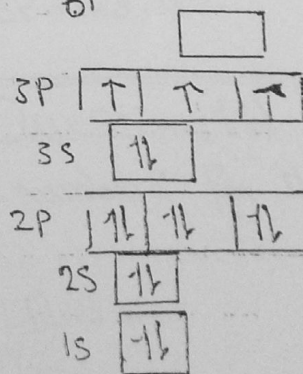 3P ↑ ↑ ↑
3S ↑↓
2P ↑↓ ↑↓ ↑↓
2S ↑↓
1S ↑↓